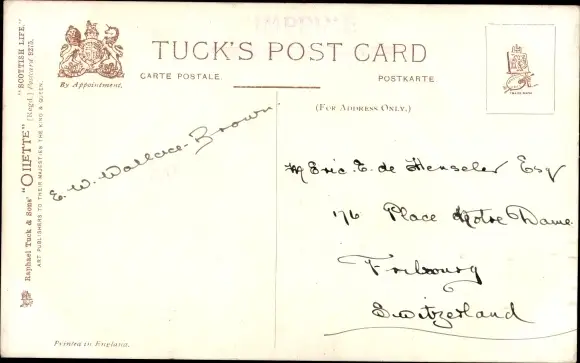 TUCK'S POST CARD
CARTE POSTALE.
POSTKARTE
By Appointment.
(FOR ADDRESS ONLY.)
E. W. Wallace-Brown.
M Eric. E. de Henseler Esq
176 Place Notre Dame.
Fribourg
Switzerland
Raphael Tuck & Sons' "OILETTE" "SCOTTISH LIFE."
(Regd.) Postcard 9275.
ART PUBLISHERS TO THEIR MAJESTIES THE KING & QUEEN.
Printed in England.